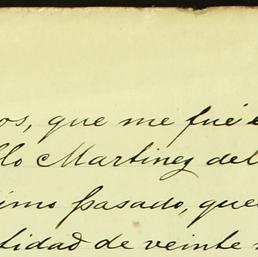 os, que me fué e
llo Martinez del
imo pasado, que
tidad de veinte